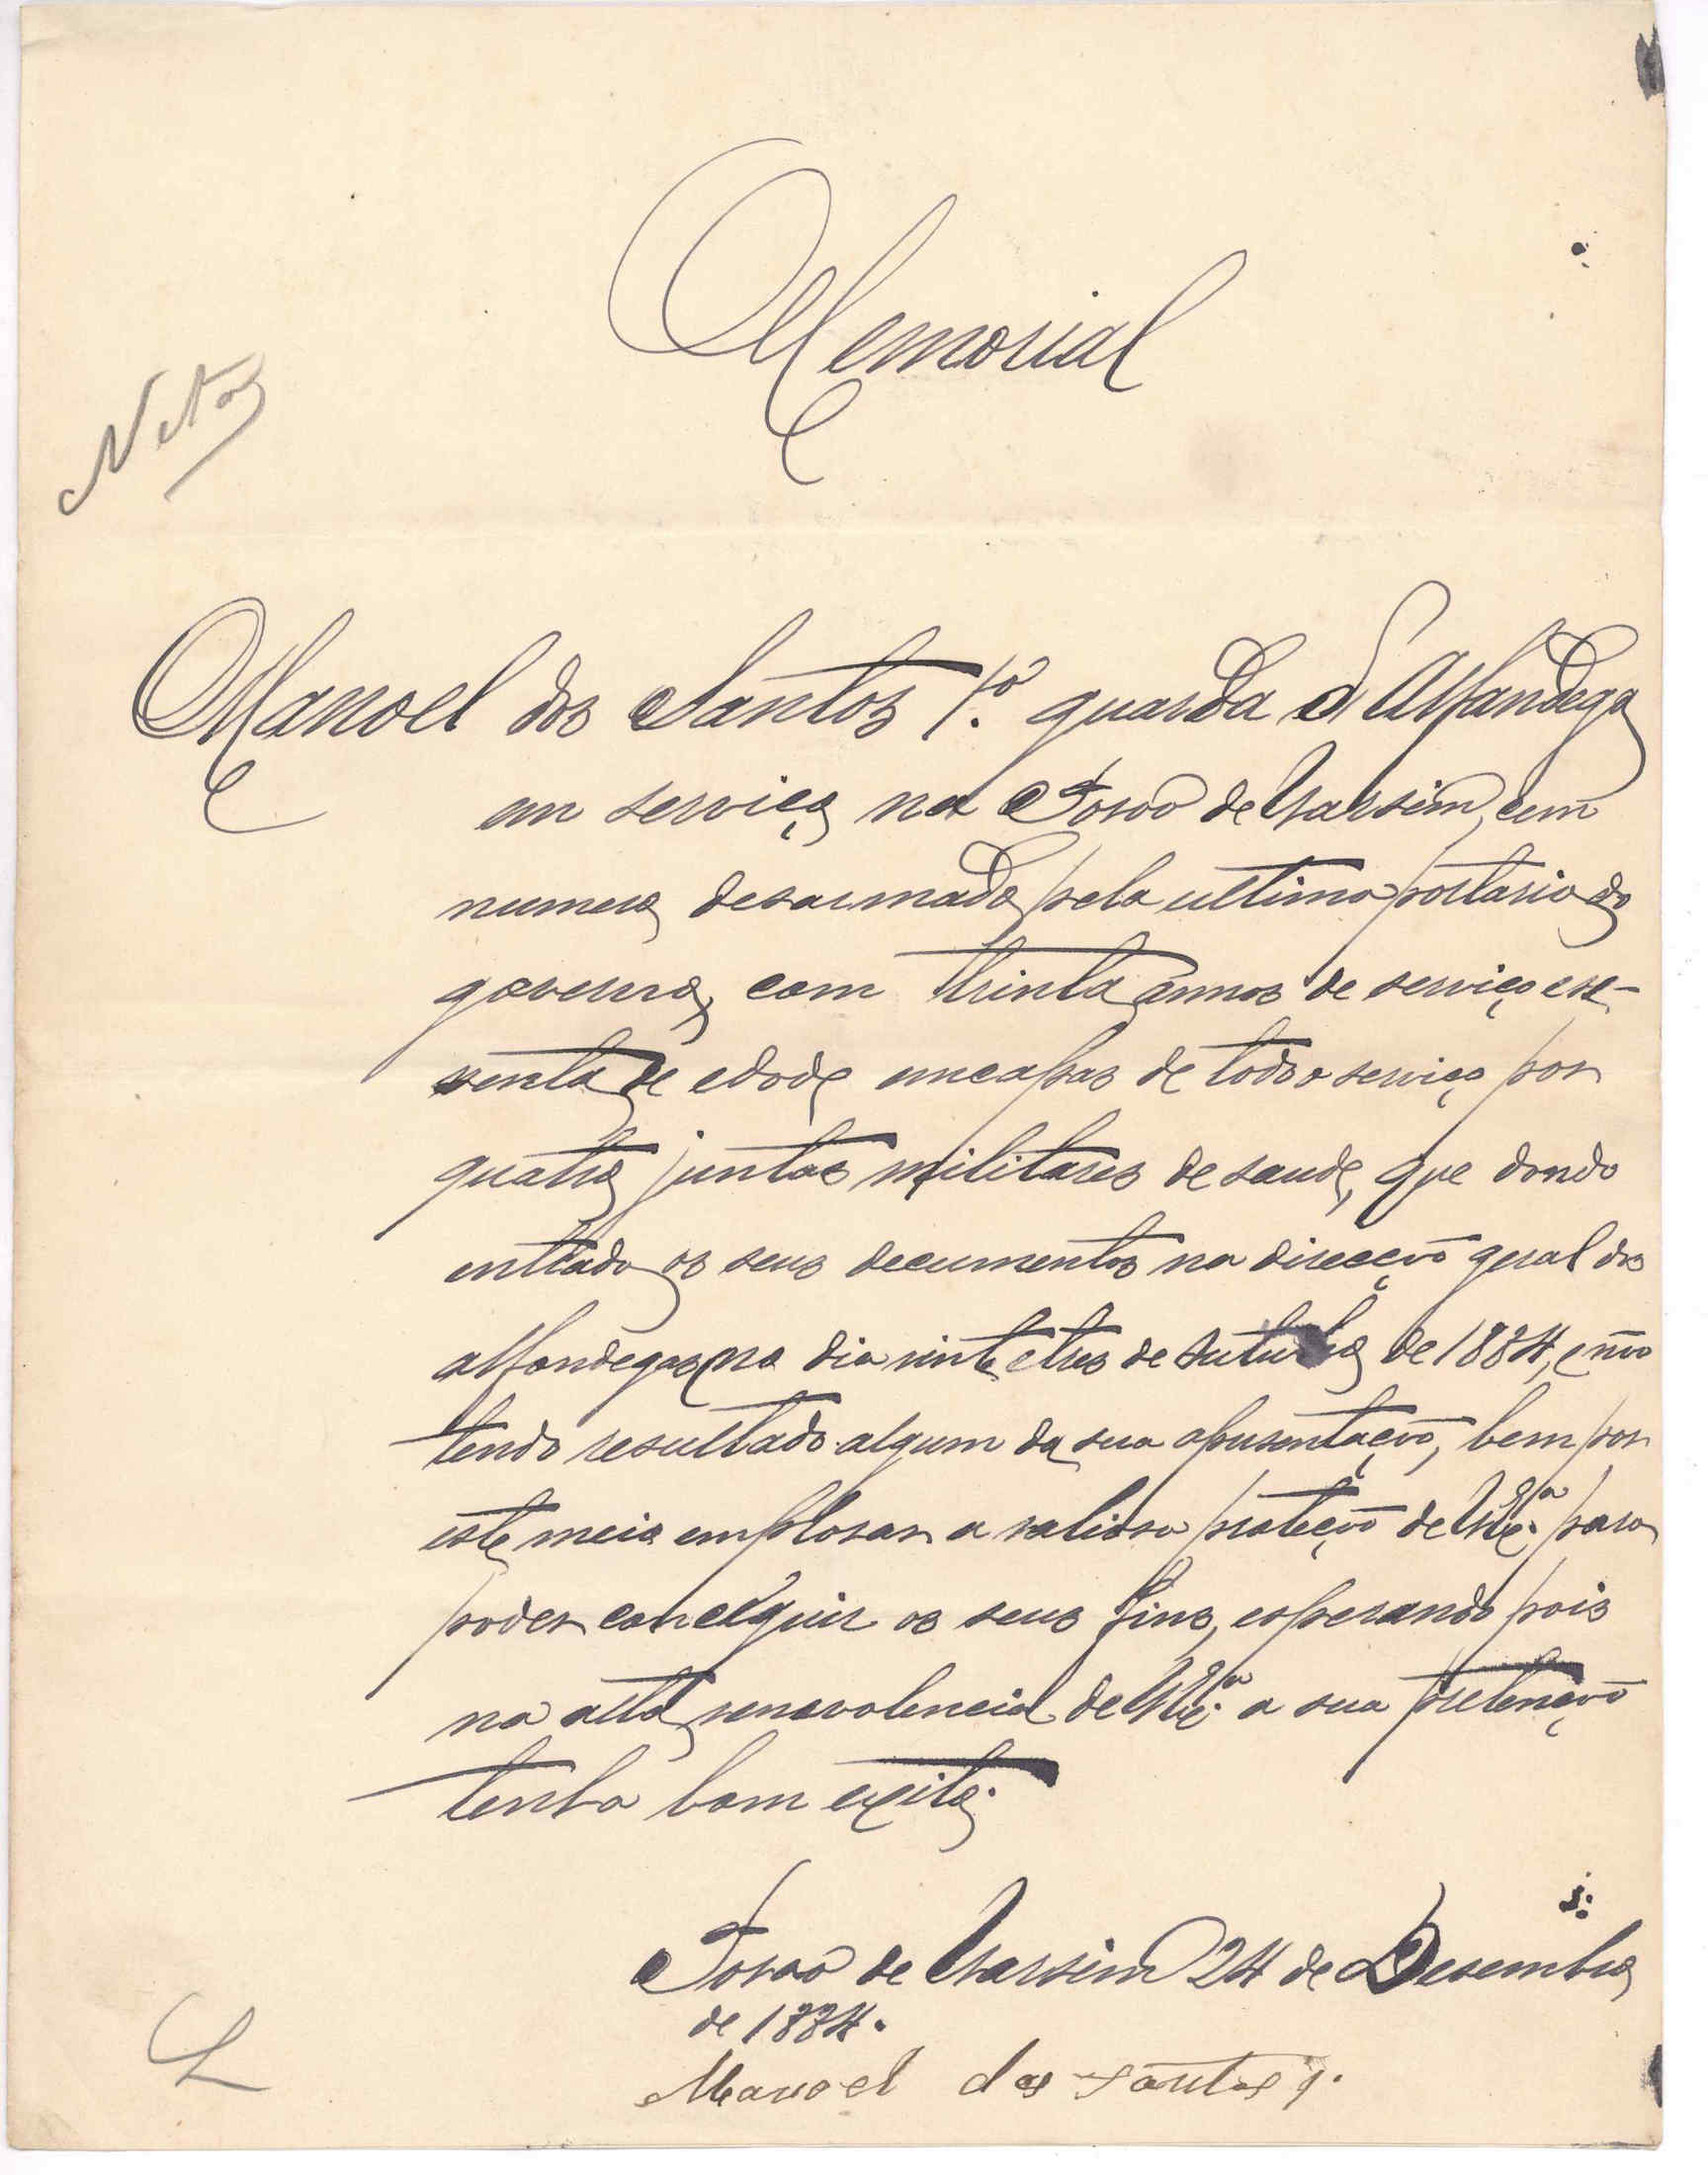 Memorial
Netos
Manoel dos Santos 1.º guarda d'Alfandega
em serviço na Povoa de Varsim, cum
numero desarmado pela ultima portaria do
governo, com trinta annos de serviço e se-
senta de edade emcapas de todo o serviço por
quatro juntas militares de saude, que dando
entrado os seus documentos na direcção geral das
alfandegas no dia vinte e tres de Outubro de 1884, e não
tendo resultado algum da sua apusentação, bem por
este meio emplorar a valiosa proteção de V. Ex.ª para
poder conseguir os seus fins, esperando pois
na alta venevolencia de V. Ex.ª a sua pretenção
tenha bom exito.
Povoa de Varsim 24 de Desembro
de 1884.
Manoel dos Santos